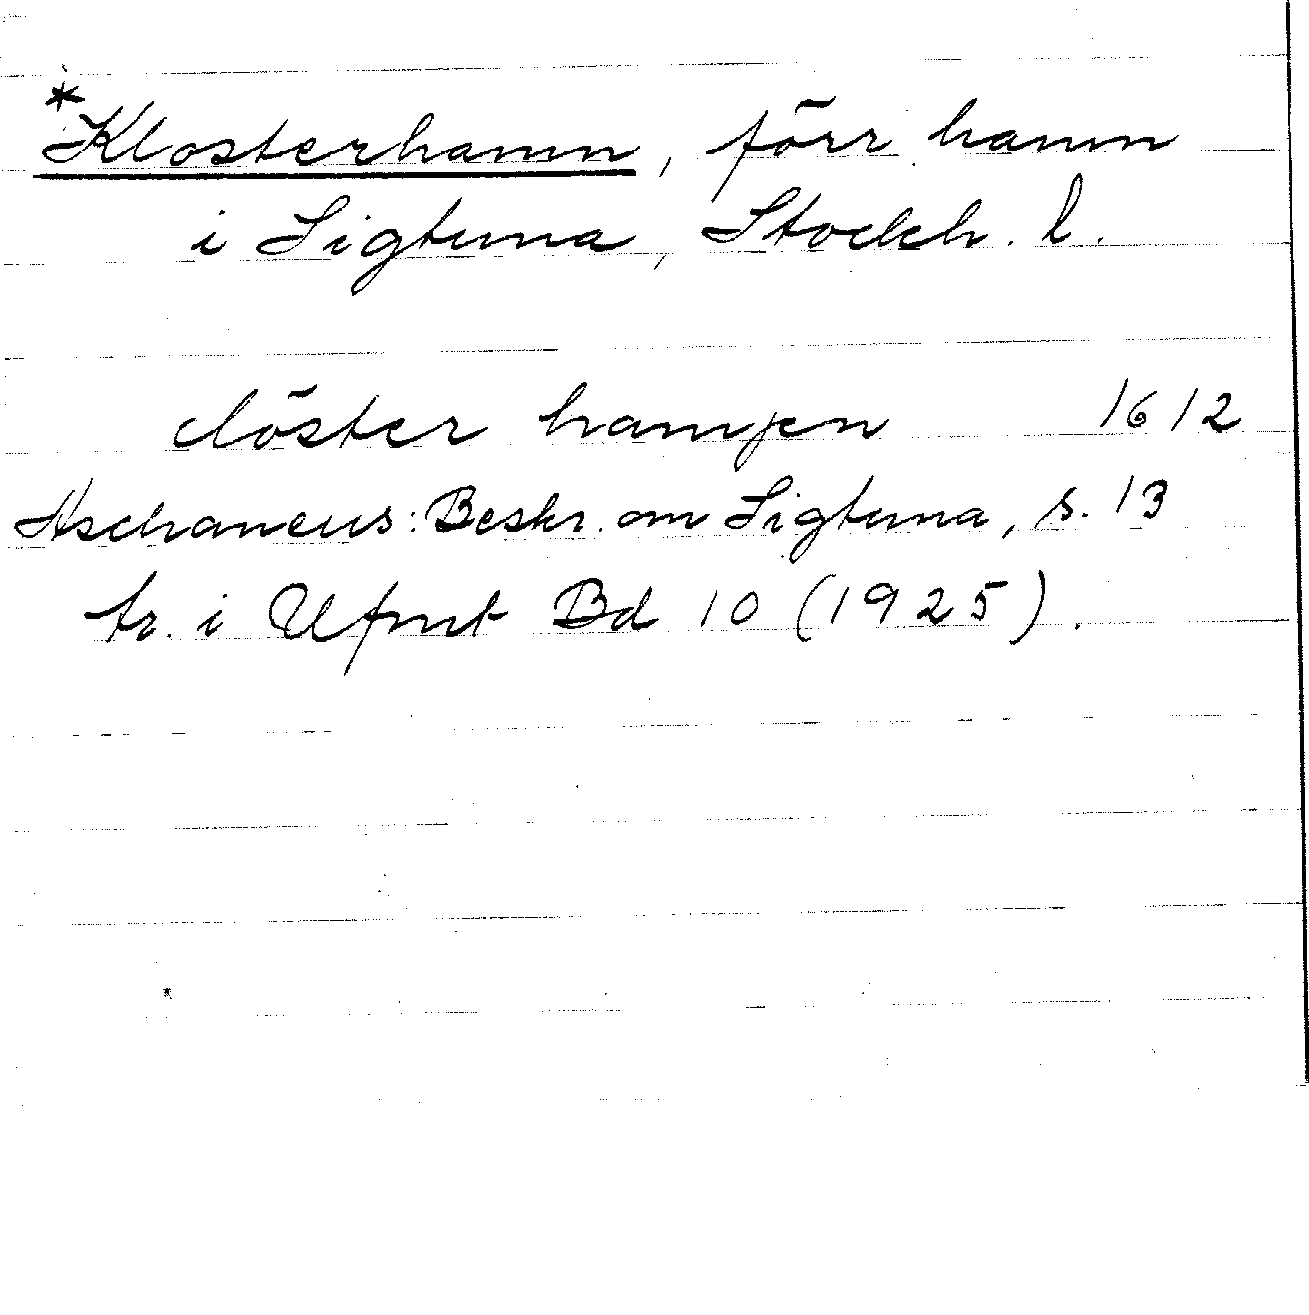 *Klosterhamn, förr hamn
i Sigtuna, Stockh. l.
clöster hampen 1612
Aschaneus: Beskr. om Sigtuna, s. 13
tr. i Ufmt Bd 10 (1925).